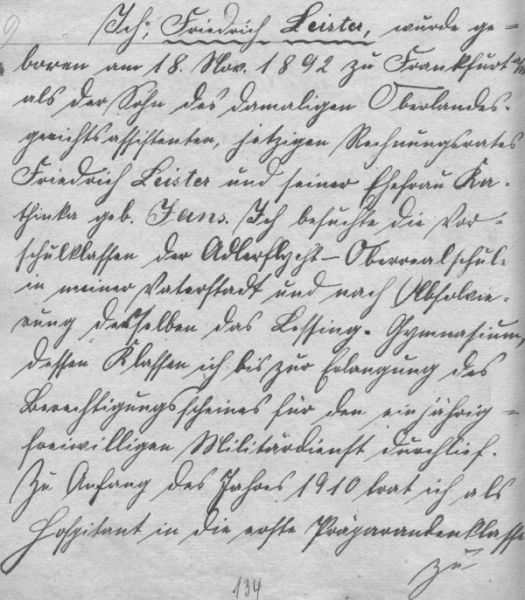 Ich, Friedrich Leister, wurde ge=
boren am 18. Nov. 1892 zu Frankfurt a/M
als der Sohn des damaligen Oberlandes=
gerichtsassistenten, jetzigen Rechnungsrates
Friedrich Leister und seiner Ehefrau Ka=
thinka geb. Jens. Ich besuchte die Vor=
schulklassen der Adlerflycht-Oberrealschule
in meiner Vaterstadt und nach Absolvie=
rung derselben das Lessing-Gymnasium,
dessen Klassen ich bis zur Erlangung des
Berechtigungsscheines für den einjährig=
freiwilligen Militärdienst durchlief.
Zu Anfang des Jahres 1910 trat ich als
Hospitant in die erste Präparandenklasse
zu
134